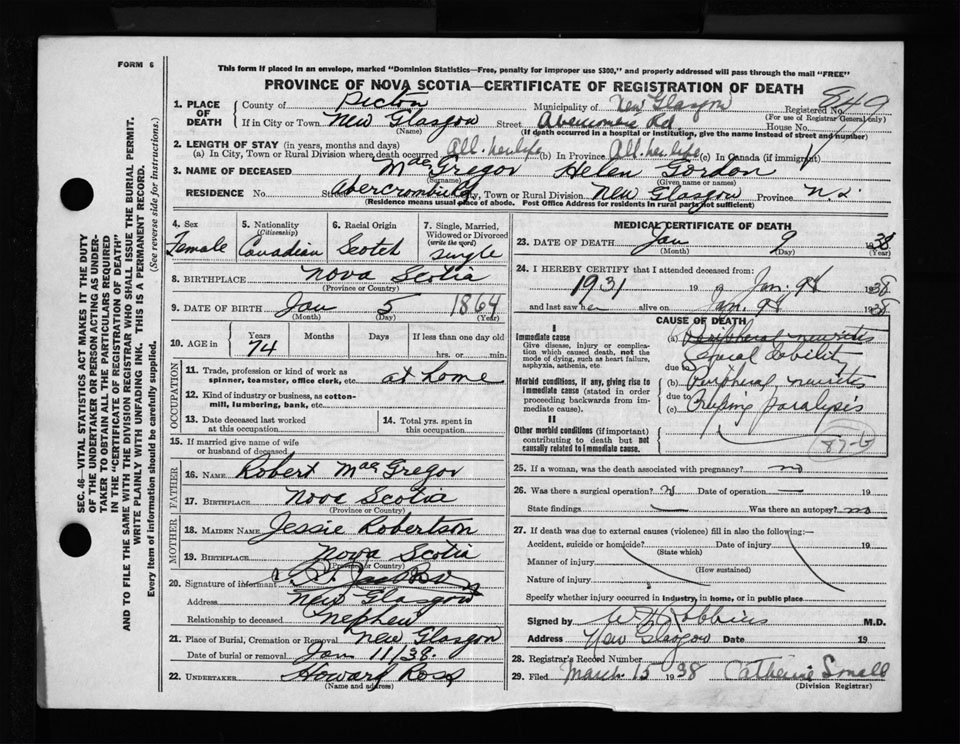 FORM 6
This form if placed in an envelope, marked "Dominion Statistics—Free, penalty for improper use $300," and properly addressed will pass through the mail "FREE"
PROVINCE OF NOVA SCOTIA—CERTIFICATE OF REGISTRATION OF DEATH
1. PLACE OF DEATH
County of Pictou Municipality of New Glasgow Registered No. 849
(For use of Registrar General only)
If in City or Town New Glasgow Street Abercrombie Rd. House No.
(Name) (If death occurred in a hospital or institution, give the name instead of street and number)
2. LENGTH OF STAY (in years, months and days)
(a) In City, Town or Rural Division where death occurred All her life (b) In Province All her life (c) In Canada (if immigrant)
3. NAME OF DECEASED MacGregor Helen Gordon
(Surname) (Given name or names)
RESIDENCE No. Street Abercrombie Rd City, Town or Rural Division New Glasgow Province N.S.
(Residence means usual place of abode. Post Office Address for residents in rural parts not sufficient)
4. Sex
Female
5. Nationality
(Citizenship)
Canadian
6. Racial Origin
Scotch
7. Single, Married, Widowed or Divorced
(write the word)
Single
8. BIRTHPLACE Nova Scotia
(Province or Country)
9. DATE OF BIRTH Jan 5 1864
(Month) (Day) (Year)
10. AGE in Years Months Days If less than one day old
74 hrs. or min.
OCCUPATION
11. Trade, profession or kind of work as spinner, teamster, office clerk, etc. at home
12. Kind of industry or business, as cotton-mill, lumbering, bank, etc.
13. Date deceased last worked at this occupation
14. Total yrs. spent in this occupation.
15. If married give name of wife or husband of deceased
FATHER
16. NAME Robert MacGregor
17. BIRTHPLACE Nova Scotia
(Province or Country)
MOTHER
18. MAIDEN NAME Jessie Robertson
19. BIRTHPLACE Nova Scotia
(Province or Country)
20. Signature of informant
Address New Glasgow
Relationship to deceased nephew
21. Place of Burial, Cremation or Removal New Glasgow
Date of burial or removal Jan 11/38.
22. UNDERTAKER Howard Ross
(Name and address)
MEDICAL CERTIFICATE OF DEATH
23. DATE OF DEATH Jan 9 1938
(Month) (Day) (Year)
24. I HEREBY CERTIFY that I attended deceased from:
1931 19 Jan. 9th 1938
and last saw her alive on Jan. 9th 1938
CAUSE OF DEATH
I
Immediate cause
Give disease, injury or complication which caused death, not the mode of dying, such as heart failure, asphyxia, asthenia, etc.
(a) Peripheral neuritis
General debility
due to
Morbid conditions, if any, giving rise to immediate cause (stated in order proceeding backwards from immediate cause).
(b) Peripheral neuritis
due to
(c) Creeping paralysis
II
Other morbid conditions (if important) contributing to death but not causally related to immediate cause.
87-b
25. If a woman, was the death associated with pregnancy? no
26. Was there a surgical operation? Date of operation — 19
State findings Was there an autopsy? no
27. If death was due to external causes (violence) fill in also the following:
Accident, suicide or homicide? Date of injury 19
(State which)
Manner of injury
(How sustained)
Nature of injury
Specify whether injury occurred in industry, in home, or in public place
Signed by W H Robbins M.D.
Address New Glasgow Date 19
28. Registrar's Record Number
29. Filed March 15 1938 Catherine Small
(Division Registrar)
SEC. 46—VITAL STATISTICS ACT MAKES IT THE DUTY
OF THE UNDERTAKER OR PERSON ACTING AS UNDER-
TAKER TO OBTAIN ALL THE PARTICULARS REQUIRED
IN THE "CERTIFICATE OF REGISTRATION OF DEATH"
AND TO FILE THE SAME WITH THE DIVISION REGISTRAR WHO SHALL ISSUE THE BURIAL PERMIT.
WRITE PLAINLY WITH UNFADING INK. THIS IS A PERMANENT RECORD.
Every item of information should be carefully supplied. (See reverse side for instructions.)